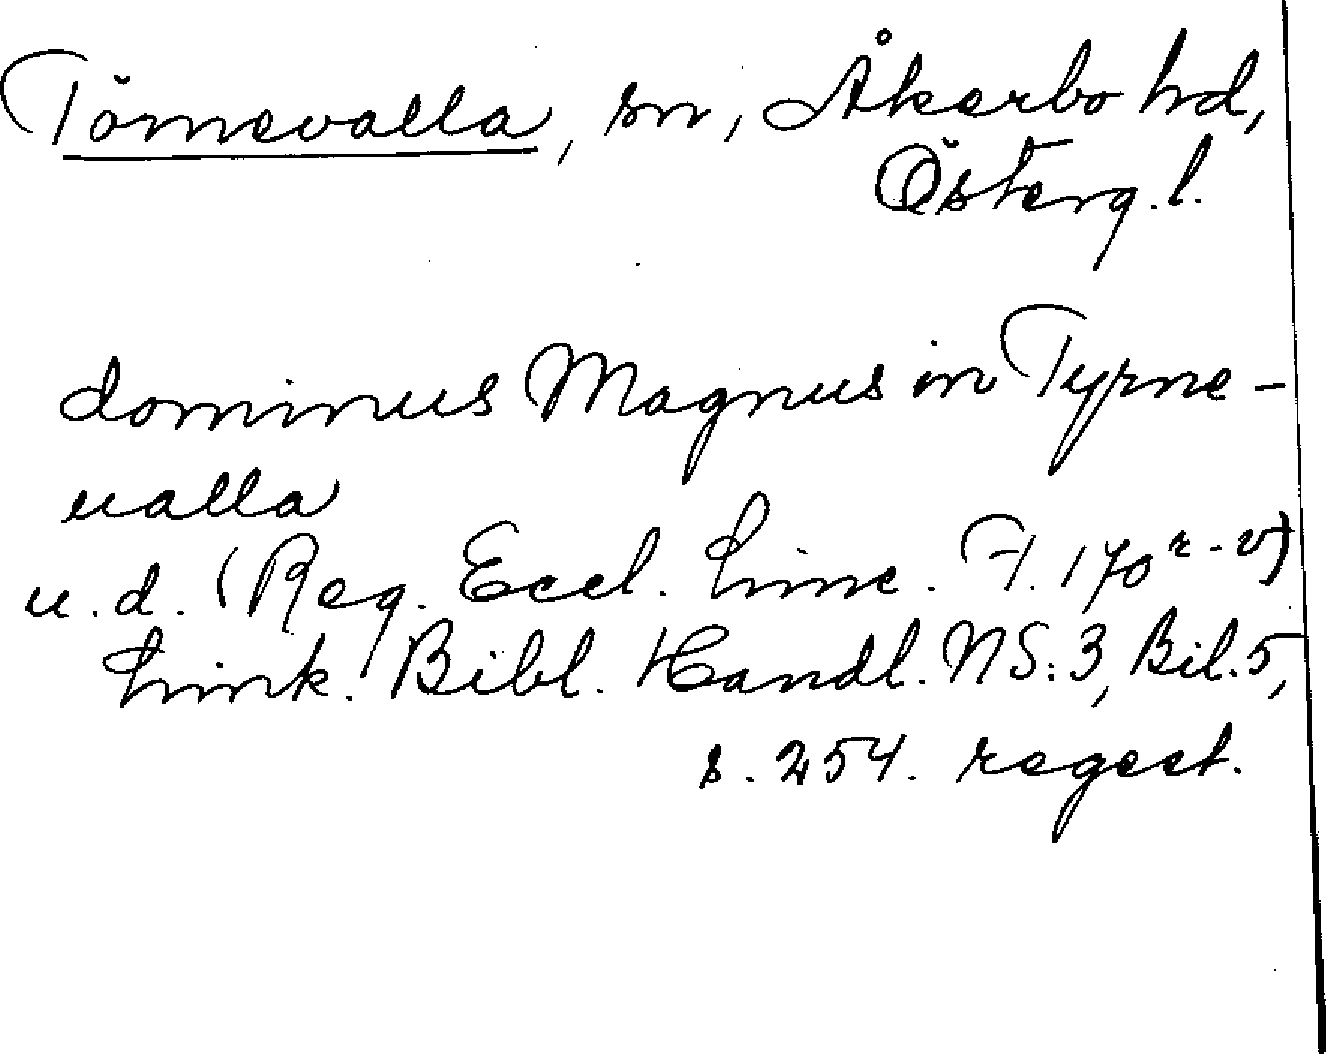 Törnevalla, sn, Åkerbo hd,
Österg.l.
dominus Magnus in Tyrne-
ualla
u.d. (Reg. Eccl. Linc. F. 170 r-v)
Link. Bibl. Handl. NS:3, Bil.5,
s. 254. regest.